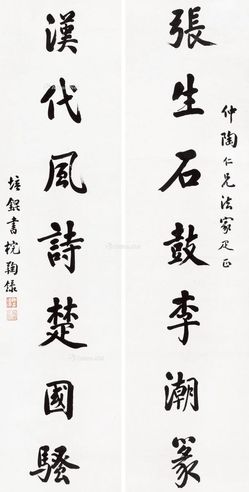 仲陶仁兄法家疋正
張生石鼓李潮篆
漢代風詩楚國騷
培錕書